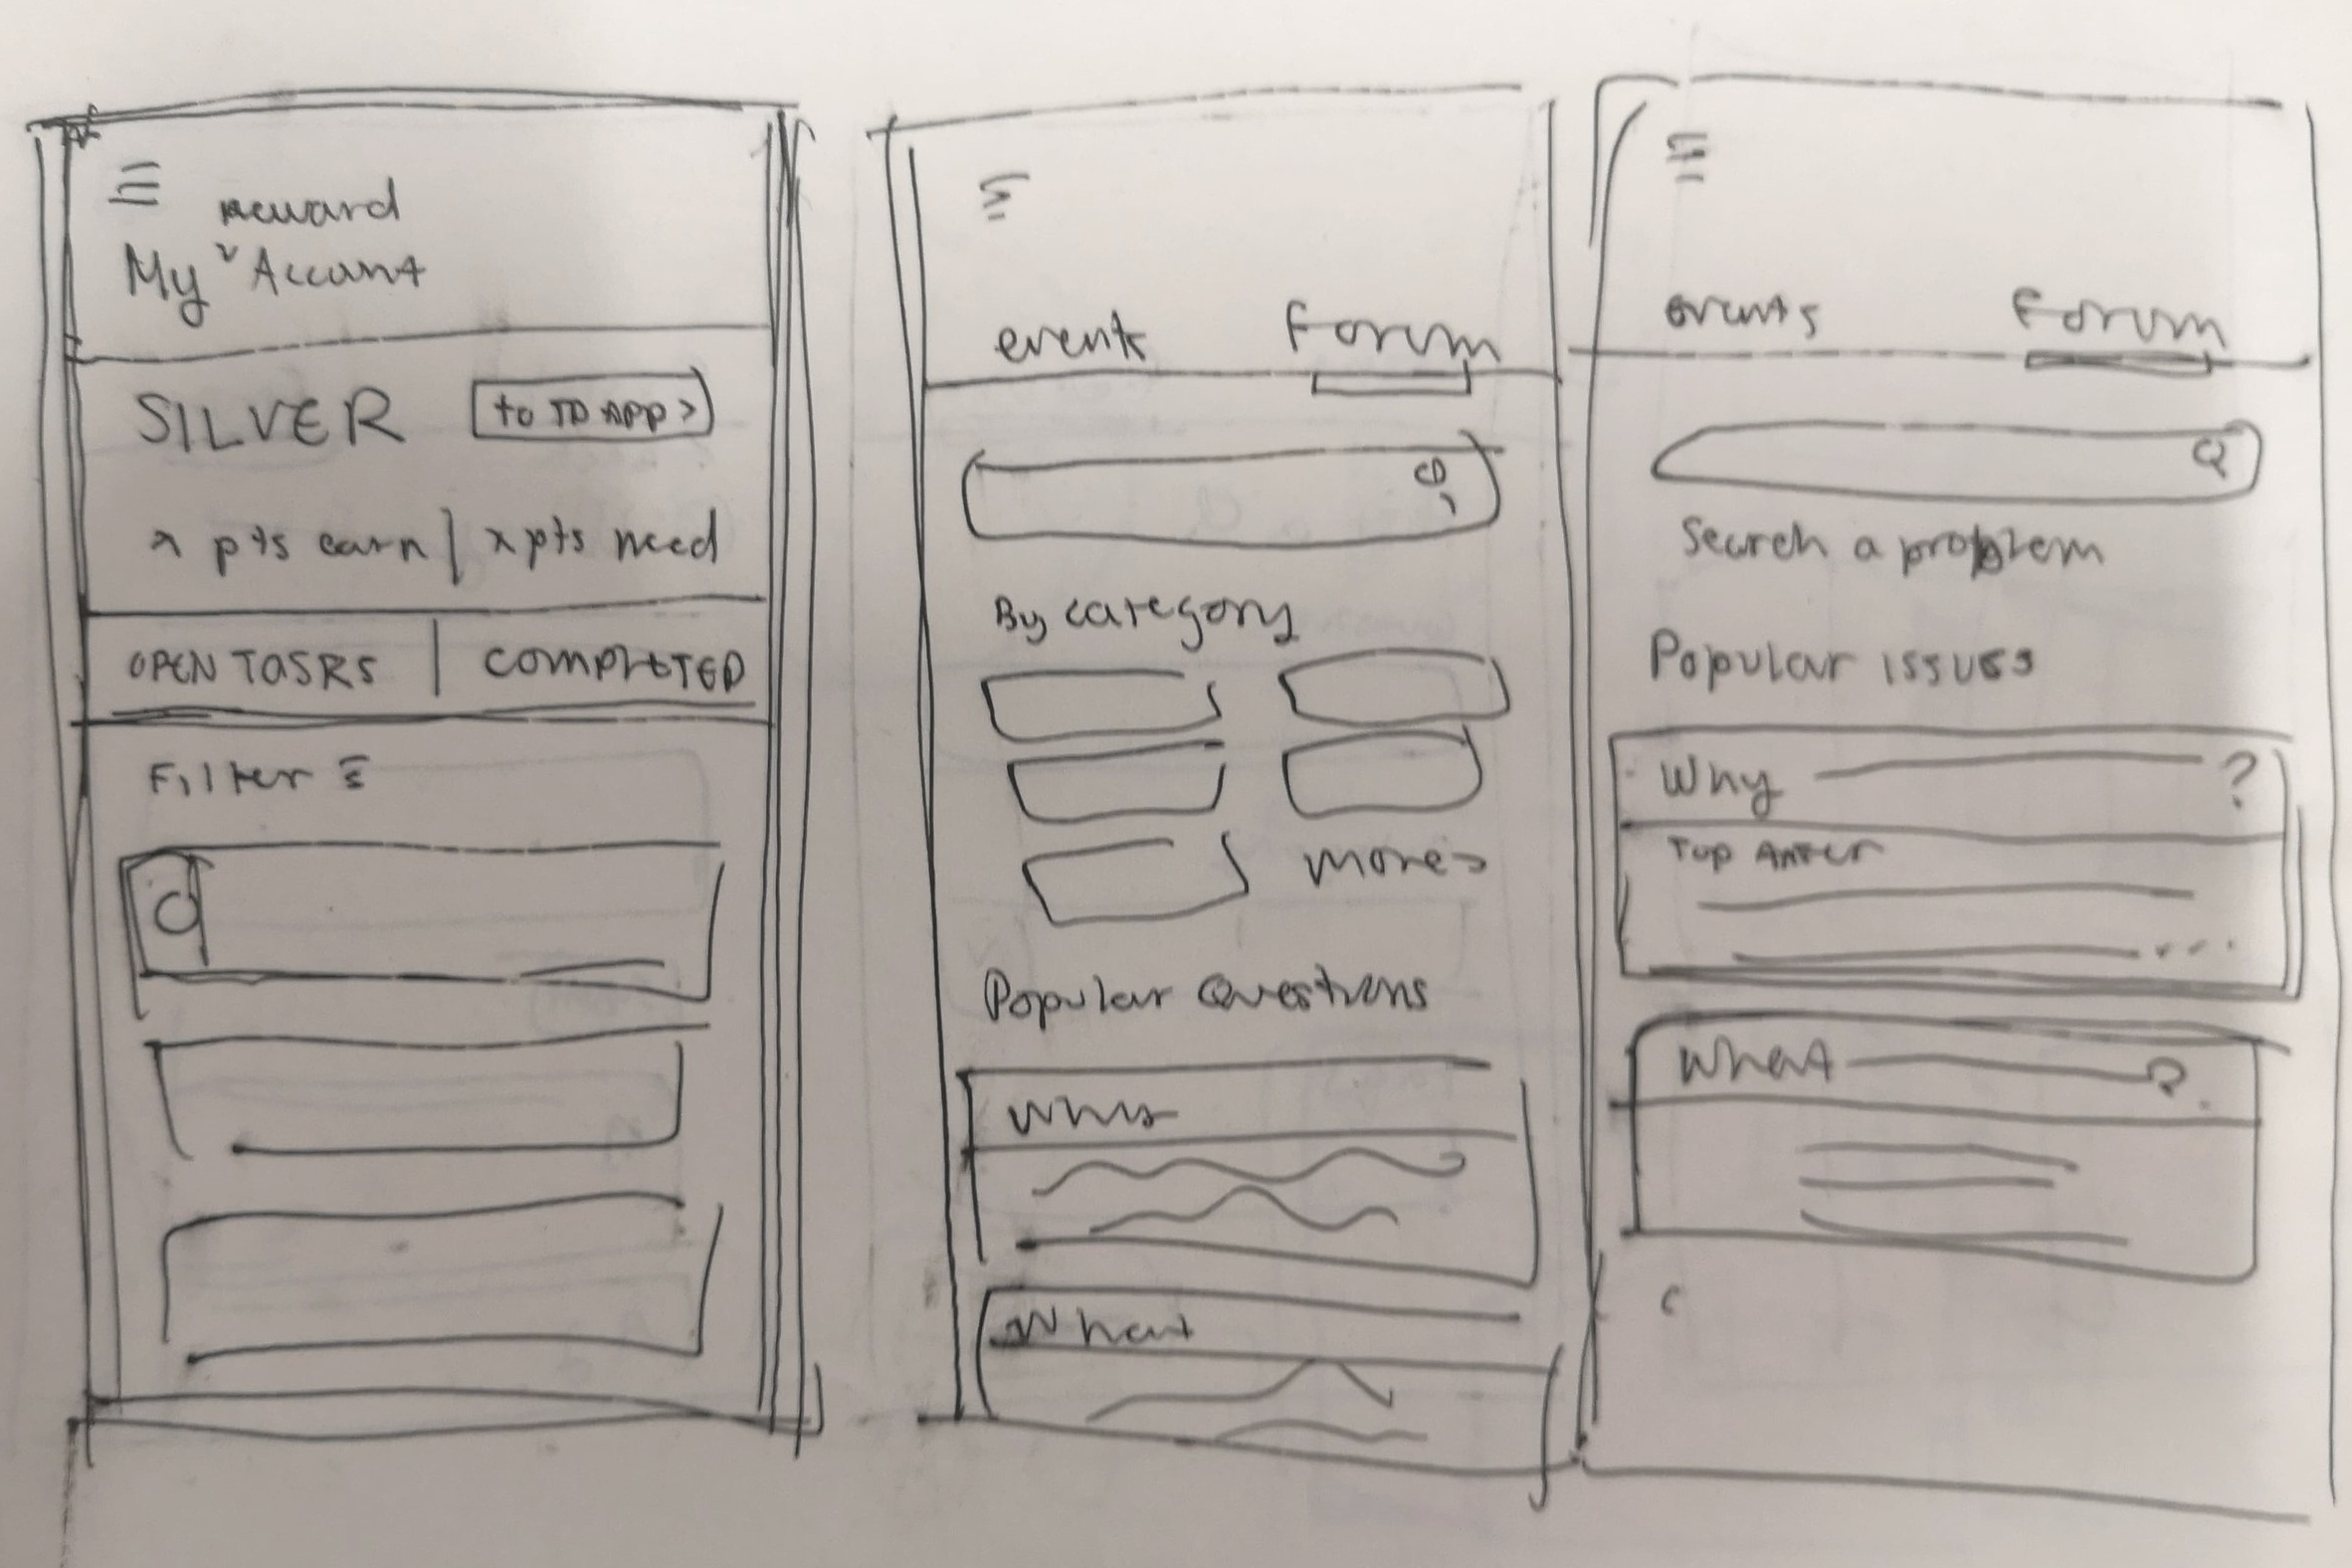 reward
My Account
SILVER
to TD APP >
x pts earn | x pts need
OPEN TASKS | COMPLETED
Filter
events Forum
By category
more >
Popular Questions
Why
What
events Forum
Search a problem
Popular issues
Why ?
Top Anser
What ?